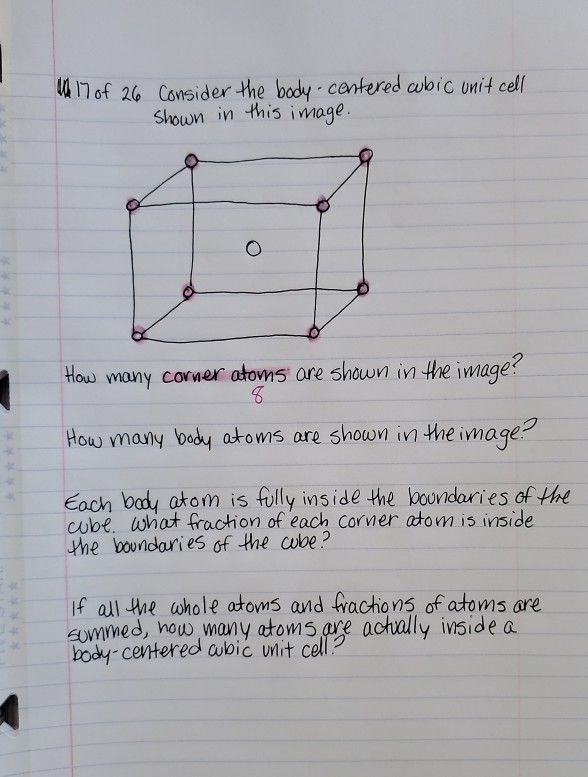 17 of 26 Consider the body-centered cubic unit cell
shown in this image.
How many corner atoms are shown in the image?
8
How many body atoms are shown in the image?
Each body atom is fully inside the boundaries of the
cube. What fraction of each corner atom is inside
the boundaries of the cube?
If all the whole atoms and fractions of atoms are
summed, how many atoms are actually inside a
body-centered cubic unit cell?